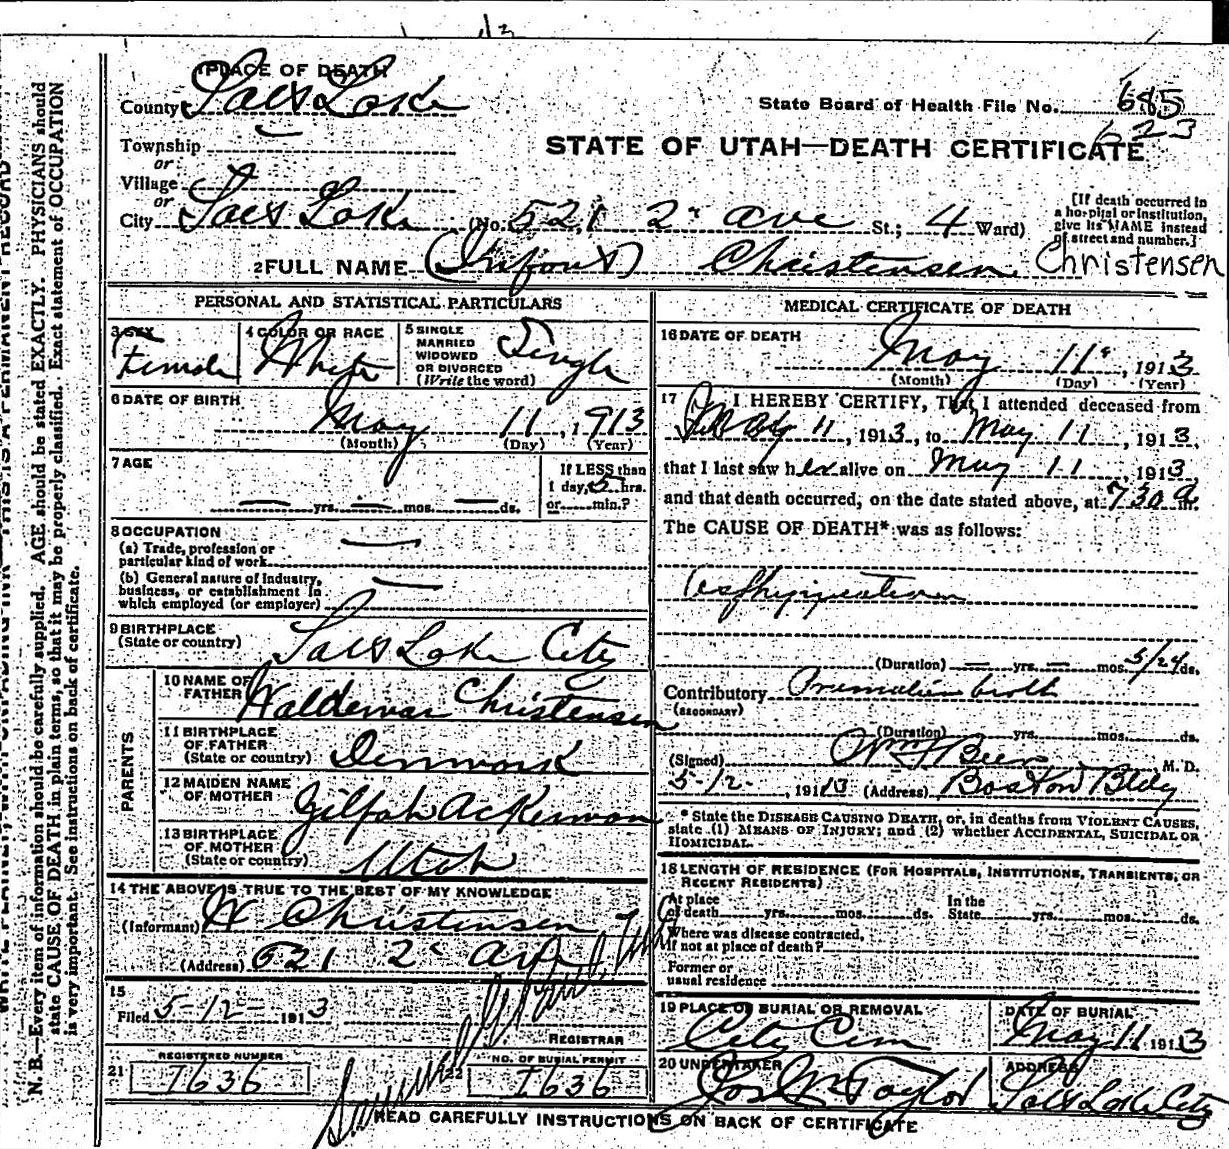 1 PLACE OF DEATH
County Salt Lake
State Board of Health File No. 685
623
Township
or
Village
or
STATE OF UTAH—DEATH CERTIFICATE
City Salt Lake (No. 521 2" ave St.; 4 Ward)
[If death occurred in a hospital or institution, give its NAME instead of street and number.]
2 FULL NAME (Infant) Christensen Christensen
PERSONAL AND STATISTICAL PARTICULARS
3 SEX
Female
4 COLOR OR RACE
White
5 SINGLE
MARRIED
WIDOWED
OR DIVORCED
(Write the word)
Single
6 DATE OF BIRTH
May 11, 1913
(Month) (Day) (Year)
7 AGE
yrs. mos. ds.
If LESS than
1 day, 5 hrs.
or min.?
8 OCCUPATION
(a) Trade, profession or
particular kind of work
(b) General nature of industry,
business, or establishment in
which employed (or employer)
9 BIRTHPLACE
(State or country)
Salt Lake City
PARENTS
10 NAME OF
FATHER
Waldemar Christensen
11 BIRTHPLACE
OF FATHER
(State or country)
Denmark
12 MAIDEN NAME
OF MOTHER
Zilpah Ackerman
13 BIRTHPLACE
OF MOTHER
(State or country)
Utah
14 THE ABOVE IS TRUE TO THE BEST OF MY KNOWLEDGE
(Informant) W Christensen
(Address) 521 2" Ave
15
Filed 5-12 1913
REGISTRAR
21 REGISTERED NUMBER
I636
22 NO. OF BURIAL PERMIT
I636
MEDICAL CERTIFICATE OF DEATH
16 DATE OF DEATH
May 11", 1913
(Month) (Day) (Year)
17 I HEREBY CERTIFY, That I attended deceased from
May 11, 1913, to May 11, 1913
that I last saw her alive on May 11, 1913
and that death occurred, on the date stated above, at 7 30 a m.
The CAUSE OF DEATH* was as follows:
Asphyxiation
(Duration) — yrs. — mos. 5/24 ds.
Contributory Premature birth
(SECONDARY)
(Duration) yrs. mos. ds.
(Signed) Wm F Beer M. D.
5-12-, 1913 (Address) Boston Bldg
* State the DISEASE CAUSING DEATH, or, in deaths from VIOLENT CAUSES,
state (1) MEANS OF INJURY; and (2) whether ACCIDENTAL, SUICIDAL OR
HOMICIDAL.
18 LENGTH OF RESIDENCE (FOR HOSPITALS, INSTITUTIONS, TRANSIENTS, OR
RECENT RESIDENTS)
At place
of death yrs. mos. ds.
In the
State yrs. mos. ds.
Where was disease contracted,
if not at place of death?
Former or
usual residence
19 PLACE OF BURIAL OR REMOVAL
City Cem
DATE OF BURIAL
May 11 1913
20 UNDERTAKER
Jos Wm Taylor
ADDRESS
Salt Lake City
READ CAREFULLY INSTRUCTIONS ON BACK OF CERTIFICATE
N. B.—Every item of information should be carefully supplied. AGE should be stated EXACTLY. PHYSICIANS should
state CAUSE OF DEATH in plain terms, so that it may be properly classified. Exact statement of OCCUPATION
is very important. See instructions on back of certificate.